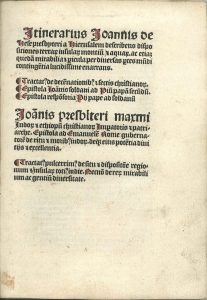 Itinerarius Joannis de
Hese presbyteri a Hierusalem describens dispo
sitiones terrarum insularum montium et aquarum. ac etiam
quedam mirabilia et pericula per diuersas partes mundi
contingentia lucidissime enarrans.
Tractatus de decem nationibus et sectis christianorum.
Epistola Joannis soldani ad Pium papam secundum.
Epistola responsoria Pii pape ad soldanum
Joannis presbiteri maximi
Indorum et ethiopum christianorum Imperatoris et patri-
arche. Epistola ad Emanuelem Rome guberna-
torem de ritu et moribus Indorum. deque eius potentia diui
tiis et excellentia.
Tractatus pulcerrimus de situ et dispositione regio-
num et insularum totius indie. Necnon de rerum mirabili
um ac gentium diuersitate.